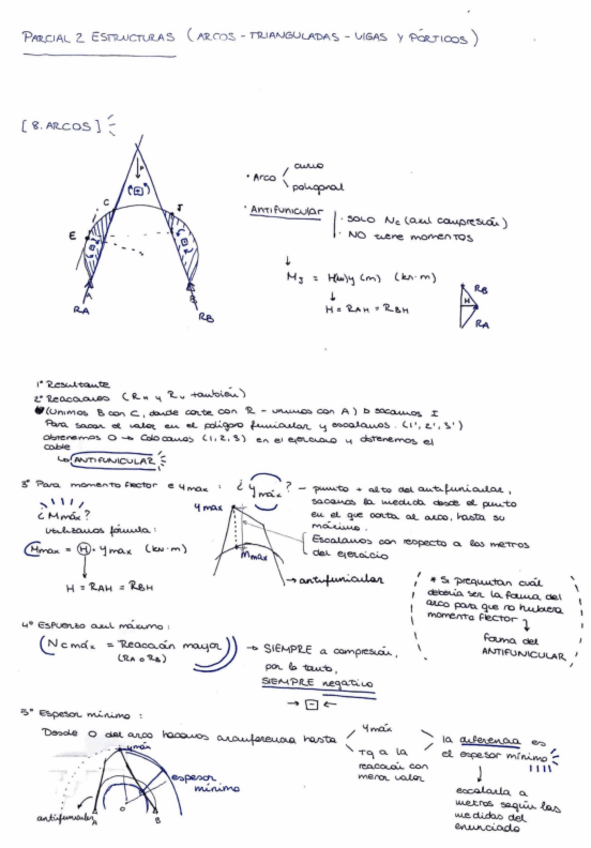 PARCIAL 2 ESTRUCTURAS (ARCOS - TRIANGULADAS - VIGAS Y PÓRTICOS)
[8. ARCOS]
• Arco
curvo
poligonal
• ANTIFUNICULAR
· SOLO Nc (axil compresión)
· NO tiene momentos
C
J
E
A
B
RA
RB
↓
MJ = H(kN)y (m) (kn·m)
↓
H = RAH = RBH
RB
H
RA
1º Resultante
2º Reacciones (RH y RV también)
(Unimos B con C, donde corte con R - unimos con A) sacamos I
Para sacar el valor en el polígono funicular y escalamos. (1', 2', 3')
obtenemos O → Colocamos (1, 2, 3) en el ejercicio y obtenemos el
cable
ANTIFUNICULAR
3º Para momento flector e ymax : ¿ ymáx ? - punto + alto del antifunicular,
sacamos la medida desde el punto
en el que corta al arco, hasta su
máximo.
Escalamos con respecto a los metros
del ejercicio
¿Mmáx?
Utilizamos fórmula:
Mmax = H · ymax (kn·m)
↓
H = RAH = RBH
ymax
Mmax
→ antifunicular
* Si preguntan cuál
debería ser la forma del
arco para que no hubiera
momento flector
forma del
ANTIFUNICULAR
4º Esfuerzo axil máximo:
Ncmáx = Reacción mayor
(RA o RB)
→ SIEMPRE a compresión,
por lo tanto,
SIEMPRE negativo
→ - ←
5º Espesor mínimo :
Desde O del arco hacemos circunferencia hasta
ymáx
Tg a la
reacción con
menor valor
la diferencia es
el espesor mínimo
↓
escalarla a
metros según las
medidas del
enunciado
ymáx
espesor
mínimo
antifunicular
A
O
B